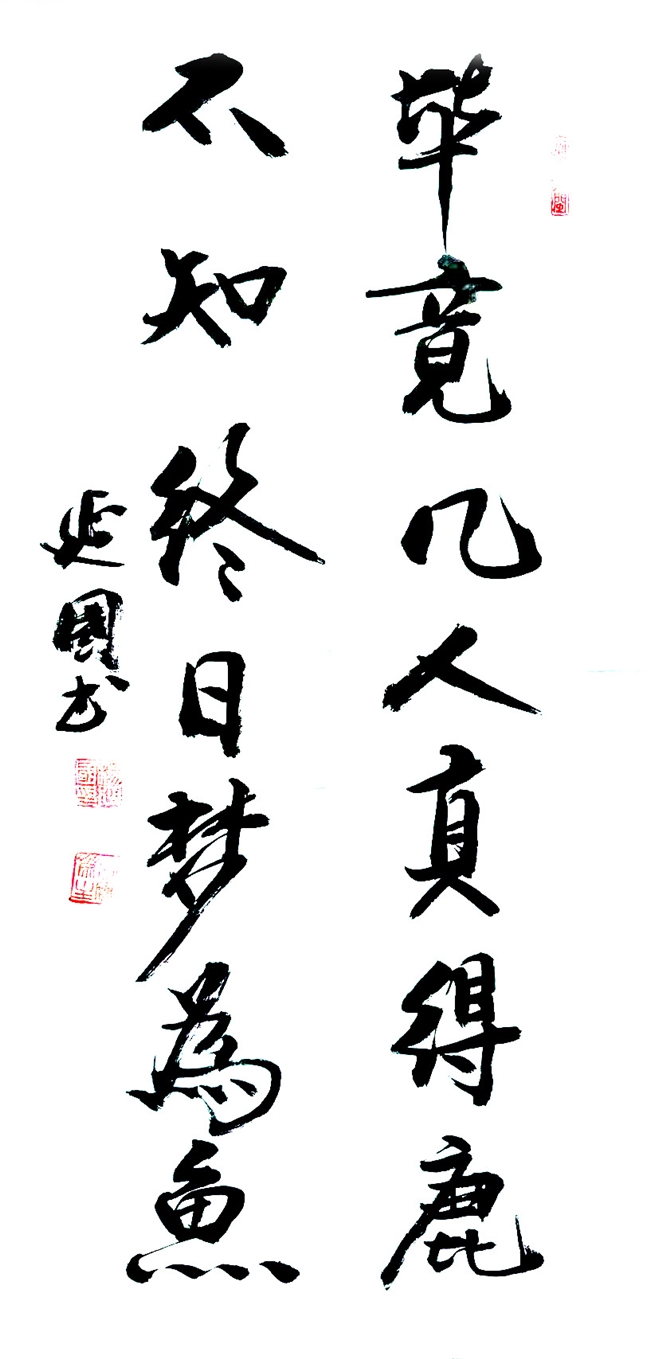 毕竟几人真得鹿
不知终日梦為魚
延國书